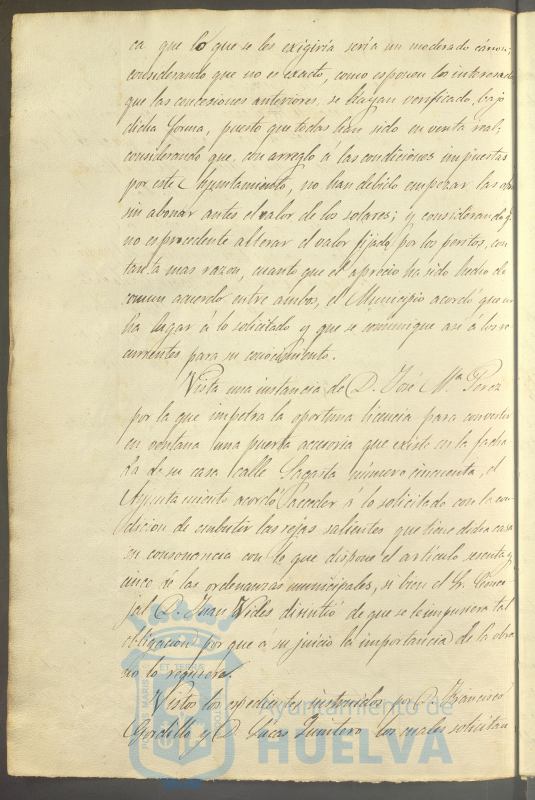 ca que lo que se les exigiría sería un moderado cánon;
considerando que no es exacto, como esponen los interesado
que las concesiones anteriores, se hayan verificado, bajo
dicha forma, puesto que todas han sido en venta real;
considerando que con arreglo á las condiciones impuestas
por este Ayuntamiento, no han debido empezar las ob
sin abonar antes el valor de los solares; y considerando q.
no es procedente alterar el valor fijado por los peritos, con
tanta mas razon, cuanto que el aprecio ha sido hecho de
comun acuerdo entre ambos, el Municipio acordó que no
ha lugar á lo solicitado y que se comunique asi á los re
currentes para su conocimiento.
Vista una instancia de D. José Mª Perez
por la que impetra la oportuna licencia para convertir
en ventana una puerta accesoria que existe en la facha
da de su casa calle Sagasta número cincuenta, el
Ayuntamiento acordó acceder á lo solicitado con la con
dicion de embutir las rejas salientes que tiene dicha casa
en consonancia con lo que dispone el artículo sesenta y
cinco de las ordenanzas municipales, si bien el Sr. Conce
jal D. Juan Vides disintió de que se le impusiera tal
obligacion por que á su juicio la importancia de la obra
no lo requiere.
Vistos los expedientes instruidos por D. Francisco
Gordillo y D. Lucas Quintero los cuales solicitan
Ayuntamiento de
HUELVA